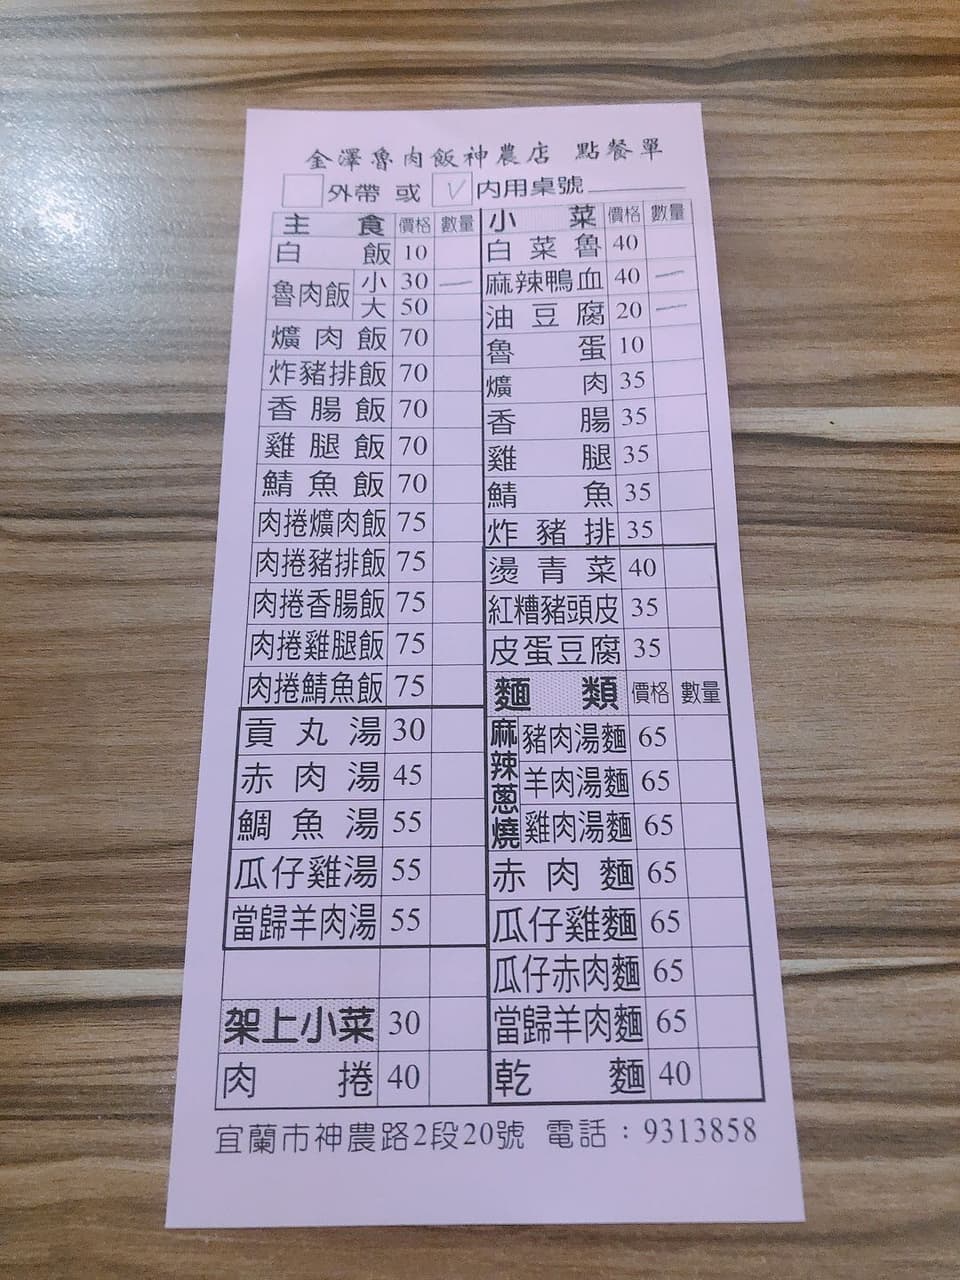 金澤魯肉飯神農店 點餐單
外帶 或 V 內用桌號
主食 價格 數量
白飯 10
魯肉飯 小 30 一
大 50
爌肉飯 70
炸豬排飯 70
香腸飯 70
雞腿飯 70
鯖魚飯 70
肉捲爌肉飯 75
肉捲豬排飯 75
肉捲香腸飯 75
肉捲雞腿飯 75
肉捲鯖魚飯 75
貢丸湯 30
赤肉湯 45
鯛魚湯 55
瓜仔雞湯 55
當歸羊肉湯 55
架上小菜 30
肉捲 40
小菜 價格 數量
白菜魯 40
麻辣鴨血 40 一
油豆腐 20 一
魯蛋 10
爌肉 35
香腸 35
雞腿 35
鯖魚 35
炸豬排 35
燙青菜 40
紅糟豬頭皮 35
皮蛋豆腐 35
麵類 價格 數量
麻辣蔥燒
豬肉湯麵 65
羊肉湯麵 65
雞肉湯麵 65
赤肉麵 65
瓜仔雞麵 65
瓜仔赤肉麵 65
當歸羊肉麵 65
乾麵 40
宜蘭市神農路2段20號 電話：9313858